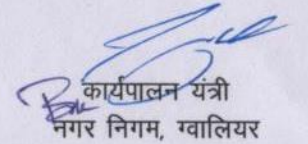 कार्यपालन यंत्री
नगर निगम, ग्वालियर